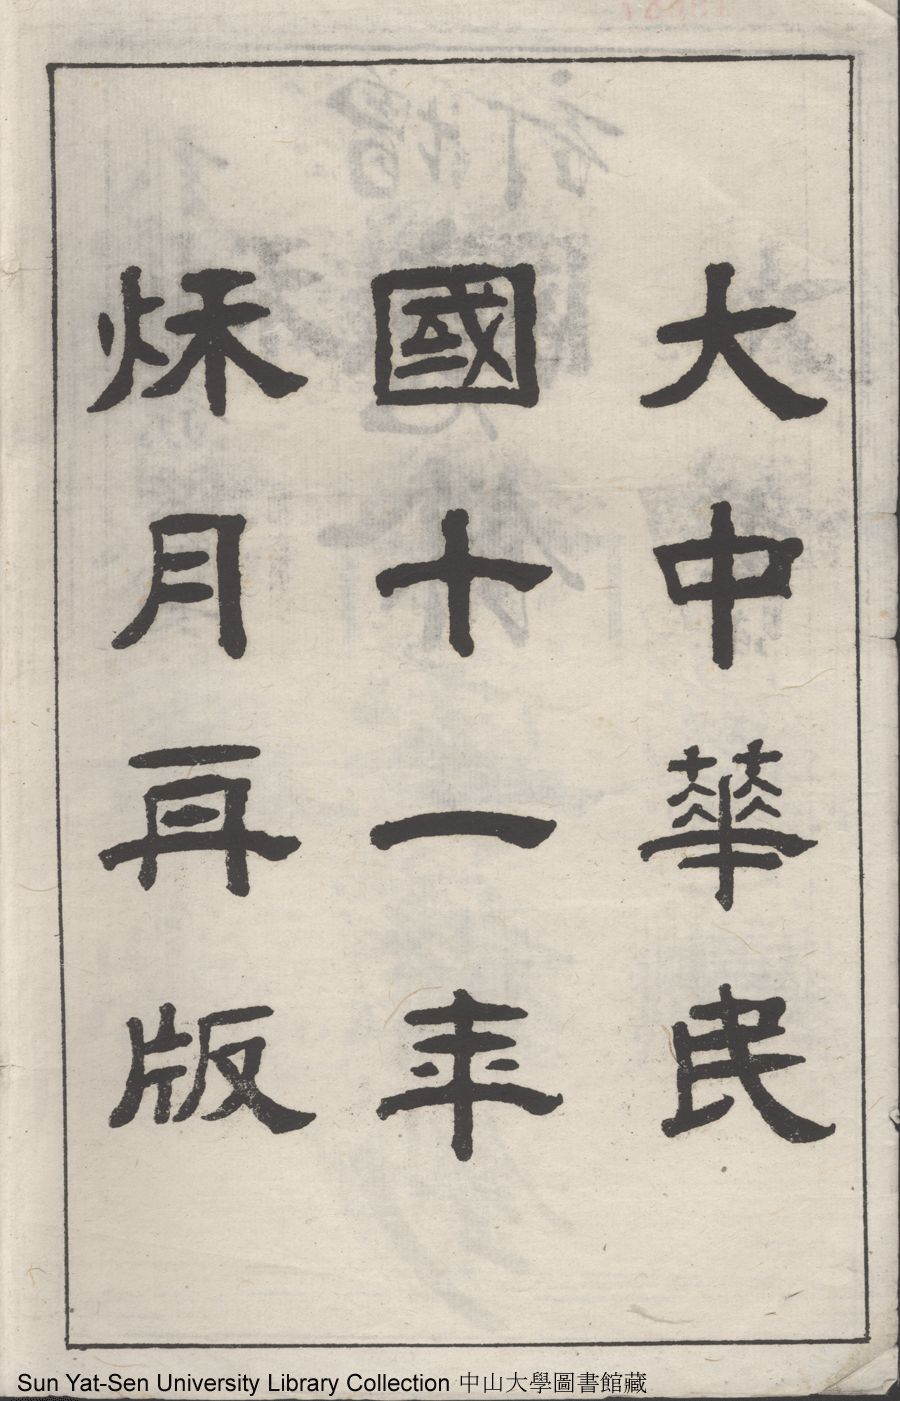 大中華民
國十一年
秌月再版
Sun Yat-Sen University Library Collection 中山大學圖書館藏